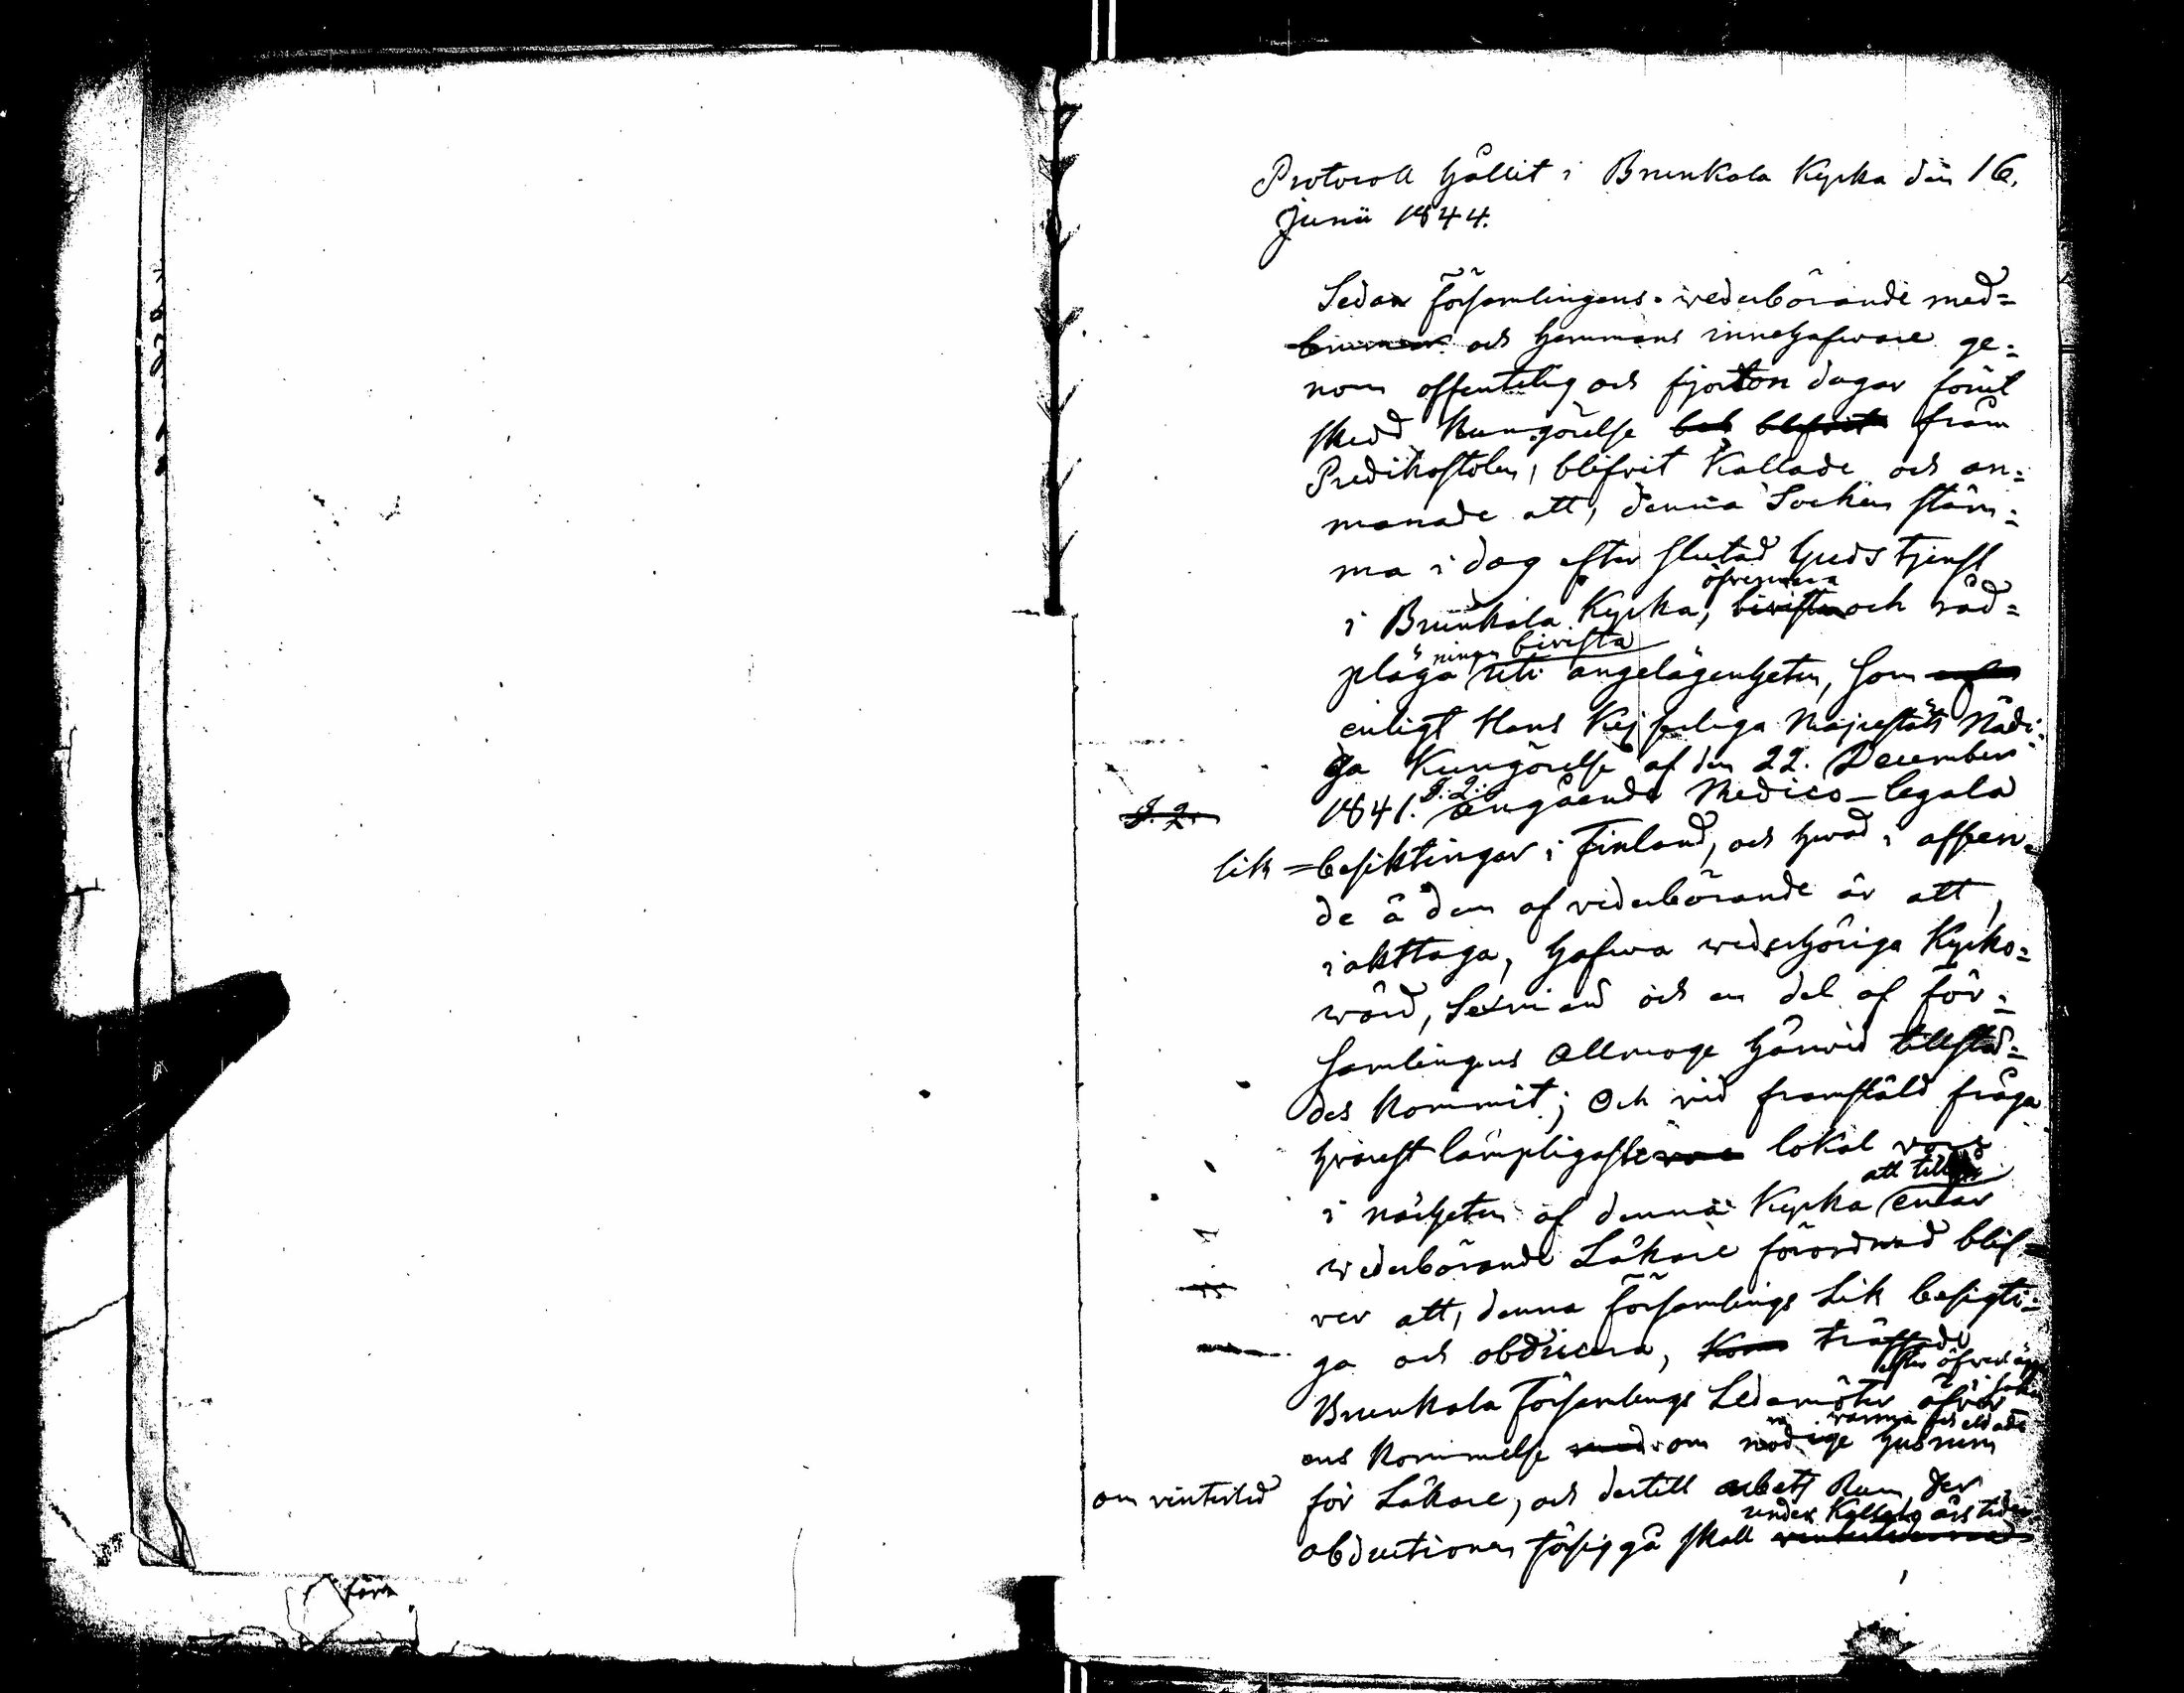 Protocoll hållit i Brunkala Kyrka den 16.
Junii 1844.
Sedan församlingens wederbörande med=
och hemmans innehafware ge=
nom offentelig och fjorton dagar förut
skedd kungörelse från
Predikostolen, blifvit kallade och an=
manade att, denna Socken stäm=
ma i dag efter slutad Gudstjenst
i Brunkala Kyrka, och råd=
bivista
pläga uti angelägenheten, som
enligt Hans Kejserliga Majestäts Nådi=
ga Kungörelse af den 22. December
1841. §. 2. angående Medico-legala
§. 2.
lik=besiktingar i Finland, och hvad i afseen=
de å dem af vederbörande är att
iakttaga, hafwa wederhöriga Kyrko=
wärd, Sexmän och en del af för=
samlingens Allmoge härvid tillstä=
des kommit; Och vid framstäld fråga
hvarest lämpligaste lokal vore
att
i närheten af denna Kyrka
wederbörande Läkare förordnad blif=
ver att, denna församlings Lik besigti=
ga och obducera, träffade
efter
Brunkala Församlings Ledamöter öfver
varma och eldade
ens kommelse om nödige husrum
om vintertid för Läkare, och dertill arbets Rum der
under årstiden
obductionen försiggå skall
före